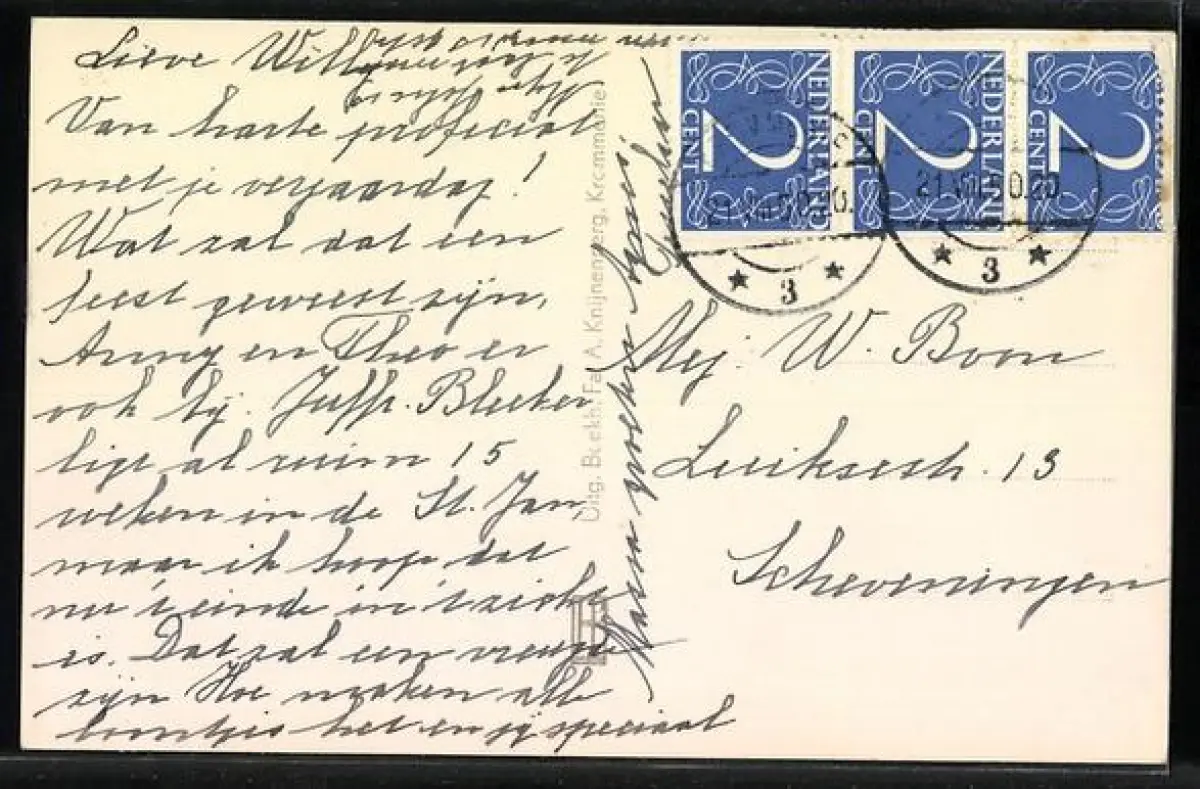 Lieve Will
Van harte proficiat
met je verjaardag!
Wat zal dat een
feest geweest zijn,
Anny en Theo er
ook bij. Juffr. Bleeker
ligt al ruim 15
weken in de St. Jan,
maar ik hoop dat
nu 't einde in 't zicht
is. Dat zal een vreugde
zijn Hoe maken alle
boontjes het en jij speciaal
Uitg. Boekh. Fa. A. Knijnenberg, Krommenie
NEDERLAND
2
CENT
NEDERLAND
2
CENT
2
CENT
3
3
Mej. W. Boon
Luiksestr. 13
Scheveningen